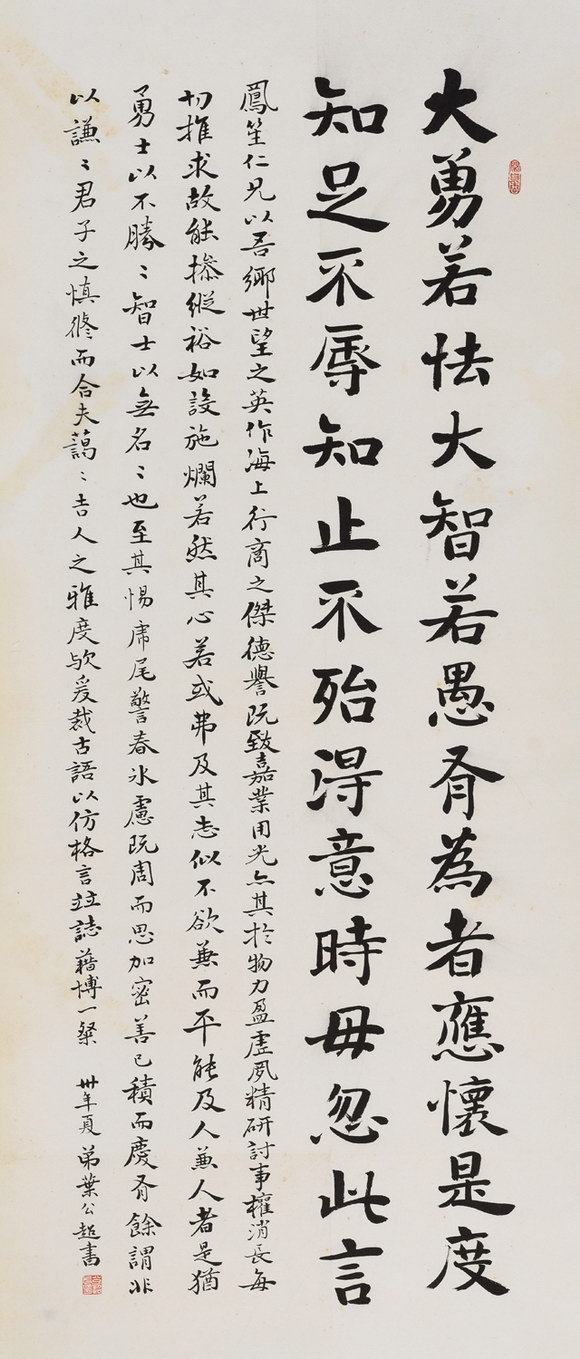 大勇若怯大智若愚有為者應懷是度
知足不辱知止不殆得意時毋忽此言
鳳笙仁兄以吾鄉世望之英作海上行商之傑德譽既致嘉業用光亦其於物力盈虛夙精研討事權消長每
切推求故能操縱裕如設施爛若然其心若或弗及其志似不欲兼而平能及人兼人者是猶
勇士以不勝〻智士以無名〻也至其惕席尾警春冰慮既周而思加密善已積而慶有餘謂非
以謙〻君子之慎修而合夫藹〻吉人之雅度歟爰裁古語以仿格言竝誌藉博一粲
卅年夏 弟葉公超書